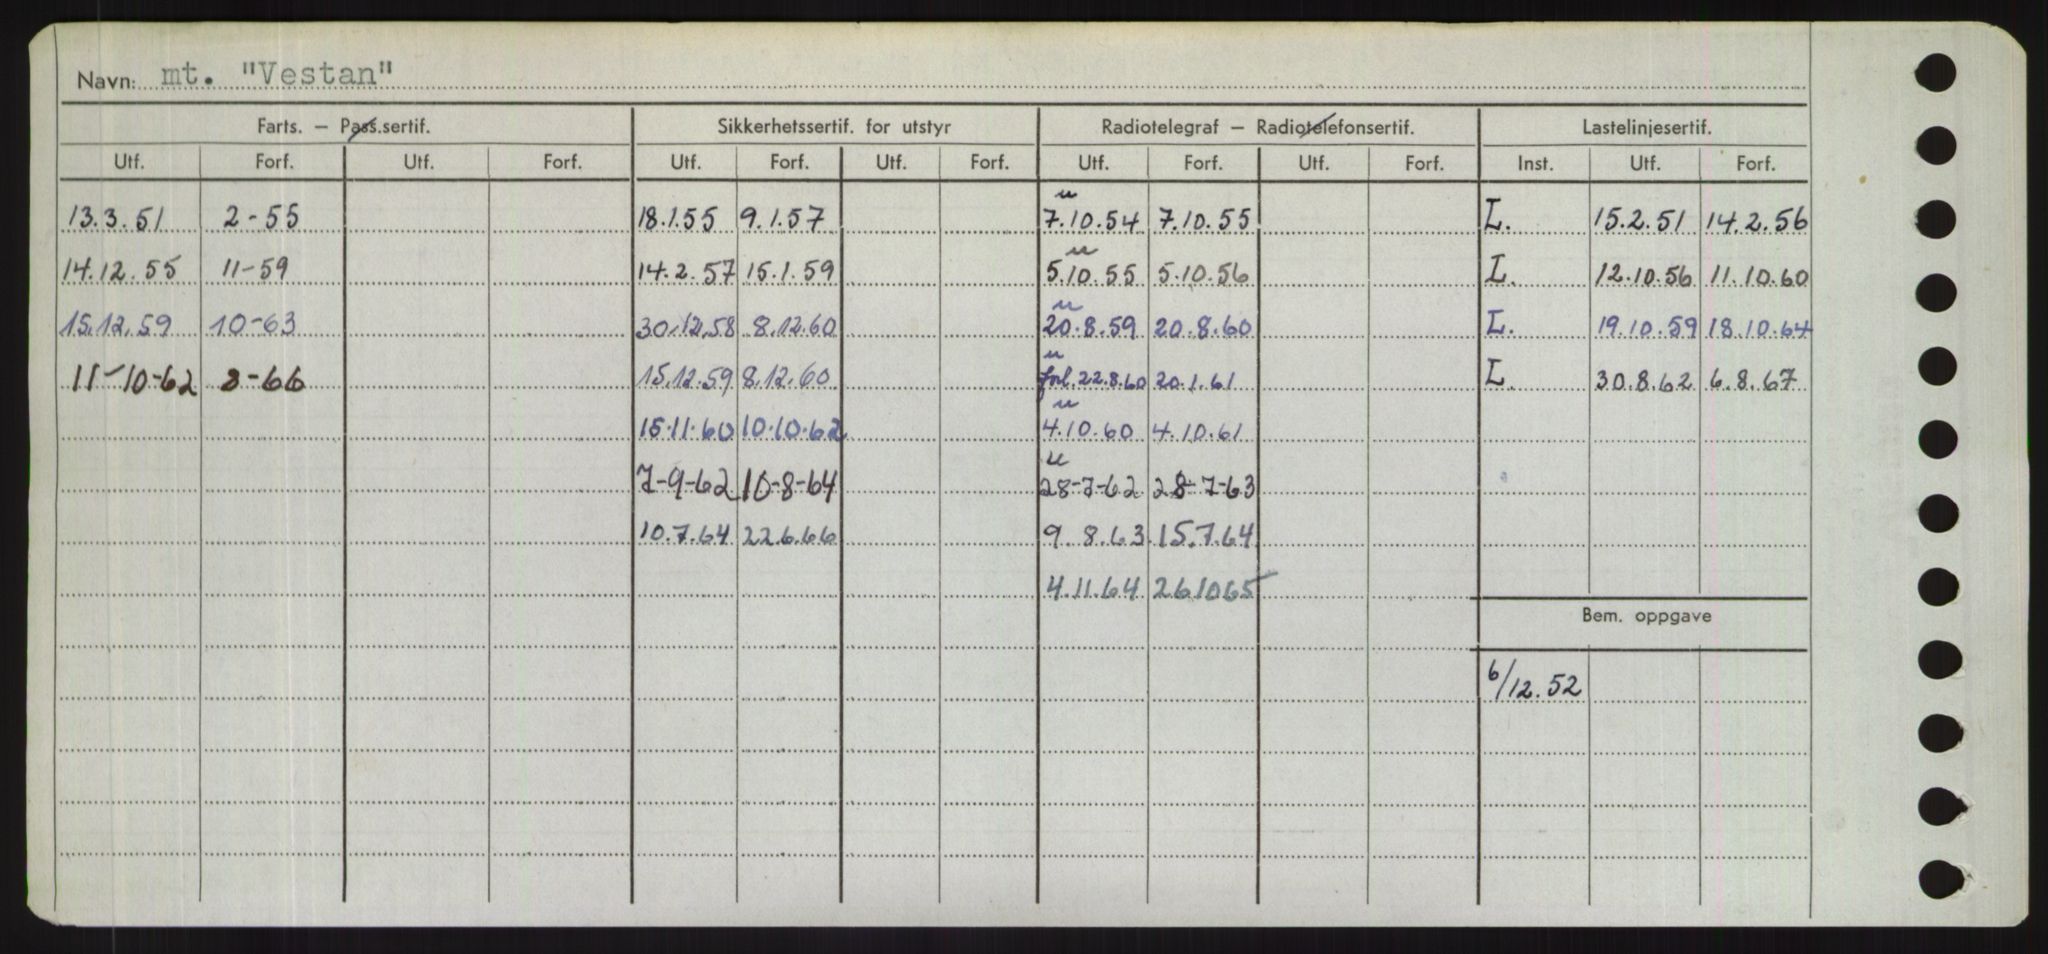 Navn: mt. "Vestan"
Farts. – Pass.sertif. Sikkerhetssertif. for utstyr Radiotelegraf – Radiotelefonsertif. Lastelinjesertif.
Utf. Forf. Utf. Forf. Utf. Forf. Utf. Forf. Utf. Forf. Utf. Forf. Inst. Utf. Forf.
u
13.3.51 2-55 18.1.55 9.1.57 7.10.54 7.10.55 L. 15.2.51 14.2.56
u
14.12.55 11-59 14.2.57 15.1.59 5.10.55 5.10.56 L. 12.10.56 11.10.60
u
15.12.59 10-63 30.12.58 8.12.60 20.8.59 20.8.60 L. 19.10.59 18.10.64
u
11-10-62 8-66 15.12.59 8.12.60 forl. 22.8.60 20.1.61 L. 30.8.62 6.8.67
u
15.11.60 10.10.62 4.10.60 4.10.61
u
7-9-62 10-8-64 28-7-62 28-7-63
10.7.64 22.6.66 9.8.63 15.7.64
4.11.64 26.10 65
Bem. oppgave
6/12.52